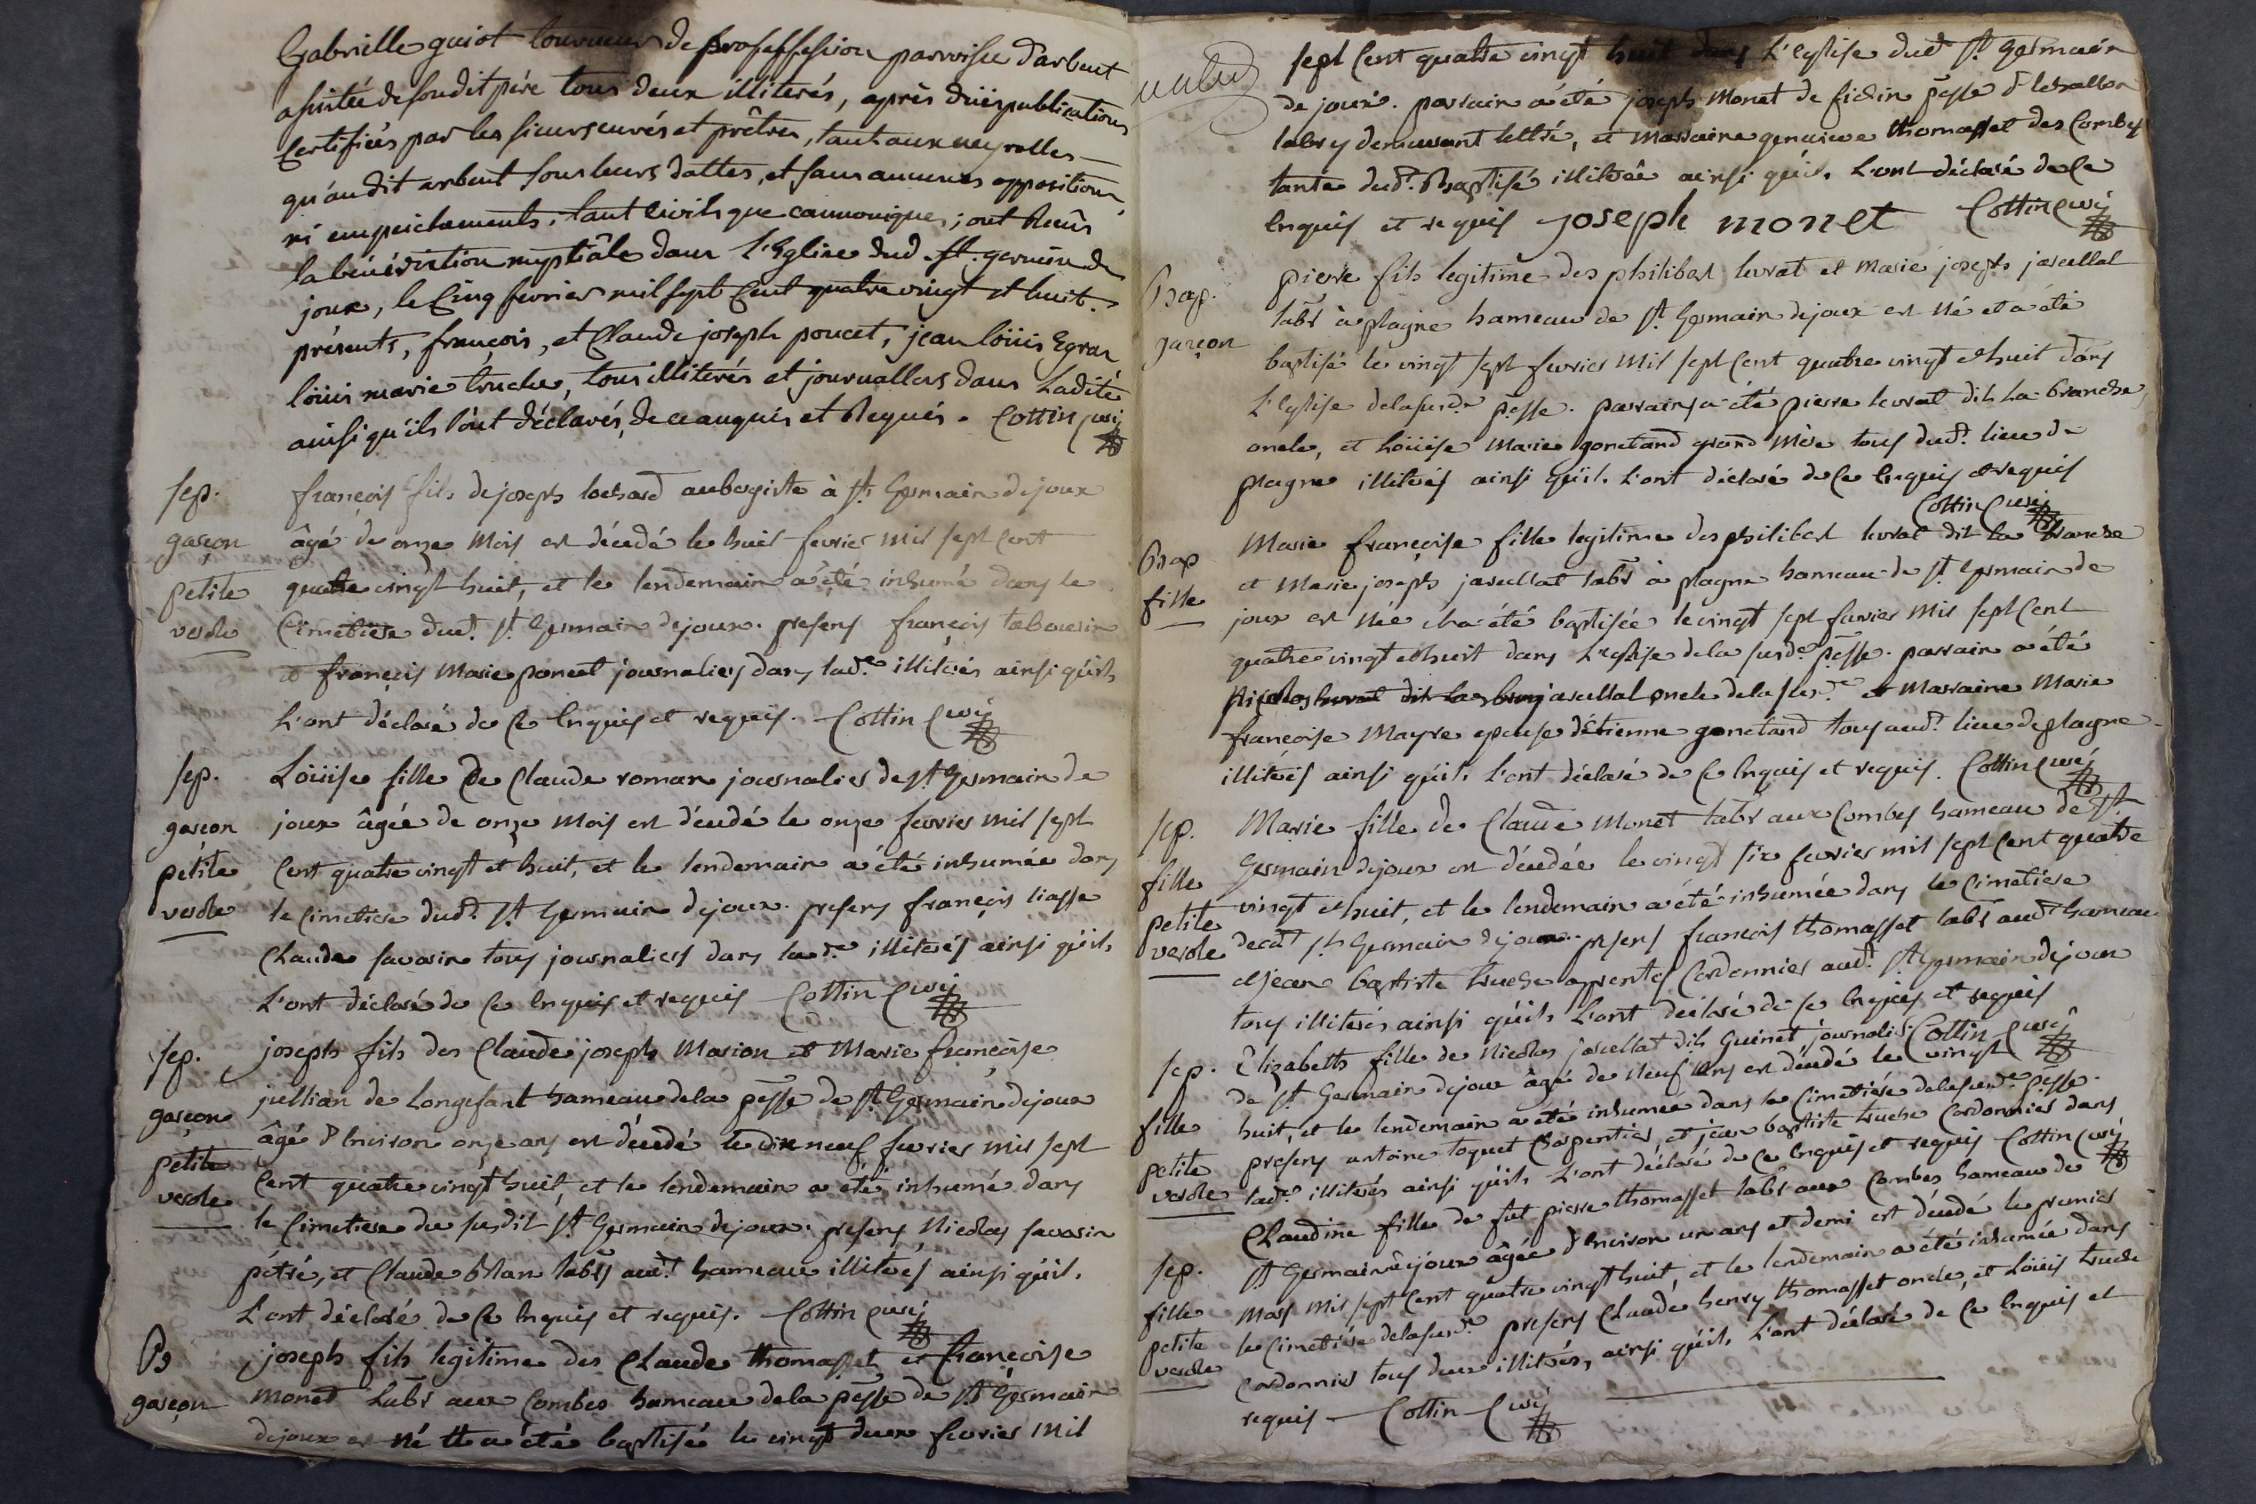 Gabrielle guiot tourneur de proseffession parroisse d'arbent
assistée de son dit père tous deux illiterés, après dües publications
Certifiées par les sieurs curés et prêtres, tant aux neyrolles
qu'au dit arbent sous leurs dattes, et sans aucunes oppositions,
ni empeichements, tant civils que cannoniques; ont Reçûs
la bénédiction nuptiâle dans l'Eglise dud. st. germain de
joux, le Cinq fevrier mil sept Cent quatre vingt et huit.
présents, françois, et Claude joseph poncet, jean loüis Egraz
loüis marie truche, tous illiterés et journalliers dans Ladite
ainsi qu'ils l'ont déclarés, de ce anquis et Requis. Cottin Curé
sep.
garçon
petite
verole
françois fils de joseph lochard aubergiste à St Germain dejoux
âgé de onze Mois est décedé le huit fevrier mil sept Cent
quatre vingt huit, et le lendemain a été inhumé dans le
Cimetiere dud. St Germain dejoux. presens françois
et françois Marie poncet journaliers dans lad.e illiterés ainsi qu'ils
L'ont déclaré de Ce Enquis et requis. Cottin Curé
sep.
garçon
petite
verole
Loüise fille De Claude roman journalier de St Germain de
joux âgée de onze Mois est décedé le onze fevrier mil sept
Cent quatre vingt et huit, et le lendemain a été inhumée dans
le Cimetiere dud. St Germain dejoux. presens françois liasse
Claude savarin tous journaliers dans lad.e illiterés ainsi qu'ils
L'ont déclaré de Ce Enquis et requis Cottin Curé
sep.
garçon
petite
verole
joseph fils des Claude joseph Marion et Marie françoise
jullian de Longefant hameau dela psse de St Germain dejoux
âgé d'Environ onze ans est décedé le dix neuf fevrier mil sept
Cent quatre vingt huit, et le lendemain a été inhumé dans
le Cimetiere du susdit St Germain dejoux. presens Nicolas savarin
pétré, et Claude labrs aud.t hameau illiterés ainsi qu'ils
L'ont déclaré de Ce Enquis et requis. Cottin Curé
B
garçon
joseph fils legitime des Claude thomasset et françoise
monet Labr aux Combes hameau dela psse de St Germain
dejoux est né et a été baptisé le vingt deux fevrier mil
sept Cent quatre vingt huit dans L'eglise dud St Germain
de joux. parrain a été joseph Monet de
labr y demeurant lettré, et Marraine genevieve thomasset des Combes
tante dud. Baptisé illiterée ainsi qu'ils L'ont déclaré de Ce
Enquis et requis joseph monet Cottin Curé
Bap.
garçon
pierre fils legitime des philibert levrat et Marie joseph jarcellat
labr à plagne hameau de St Germain dejoux est né et a été
baptisé le vingt sept fevrier Mil sept Cent quatre vingt et huit dans
L'Eglise dela susd.e psse. parrain a été pierre levrat dit La branche,
oncle, et Loüise Marie gonetand grand Mère tous dud. lieu de
plagne illiterés ainsi qu'ils L'ont déclaré de Ce Enquis et requis
Cottin Curé
Bap
fille
Marie françoise fille legitime des philibert levrat dit la branche
et Marie joseph jarcellat labr à plagne hameau de St Germain de
joux est née et a été baptisée le vingt sept fevrier Mil sept Cent
quatre vingt et huit dans L'eglise dela susd.e psse. parrain a été
Nicolas levrat dit la bran jarcellat oncle dela sus.e et Marraine Marie
françoise Mayre epouse d'étienne gonetand tous aud. lieu de plagne
illiterés ainsi qu'ils L'ont déclaré de Ce Enquis et requis. Cottin Curé
sep.
fille
petite
verole
Marie fille de Claude Monet labr aux Combes hameau de St
Germain dejoux est décedée le vingt six fevrier mil sept Cent quatre
vingt et huit, et le lendemain a été inhumée dans le Cimetiere
St Germain dejoux. presens françois thomasset labr aud.t hameau
et jean baptiste truche Cordonnier aud. St Germain dejoux
tous illiterés ainsi qu'ils L'ont déclaré de Ce Enquis et requis
Cottin Curé
sep.
fille
petite
verole
Elisabeth fille de Nicolas jarcellat dit Guinet journalier
de St Germain dejoux âgé de Neuf ans est décedé le vingt
huit, et le lendemain a été inhumée dans le Cimetiére dela susd.e psse.
presens antoine toquet Charpentier, et jean baptiste truche Cordonnier dans
lad.e illiterés ainsi qu'ils L'ont déclaré de Ce Enquis et requis Cottin Curé
sep.
fille
petite
verole
Claudine fille de fut pierre thomasset labr aux Combes hameau de
St Germain dejoux âgée d'Environ un ans et demi est décedé le premier
Mars mil sept Cent quatre vingt huit, et le lendemain a été inhumée dans
le Cimetiére dela susd.e presens Claude henry thomasset oncle, et Loüis truche
Cordonnier tous deux illiterés, ainsi qu'ils L'ont déclaré de Ce Enquis et
requis Cottin Curé